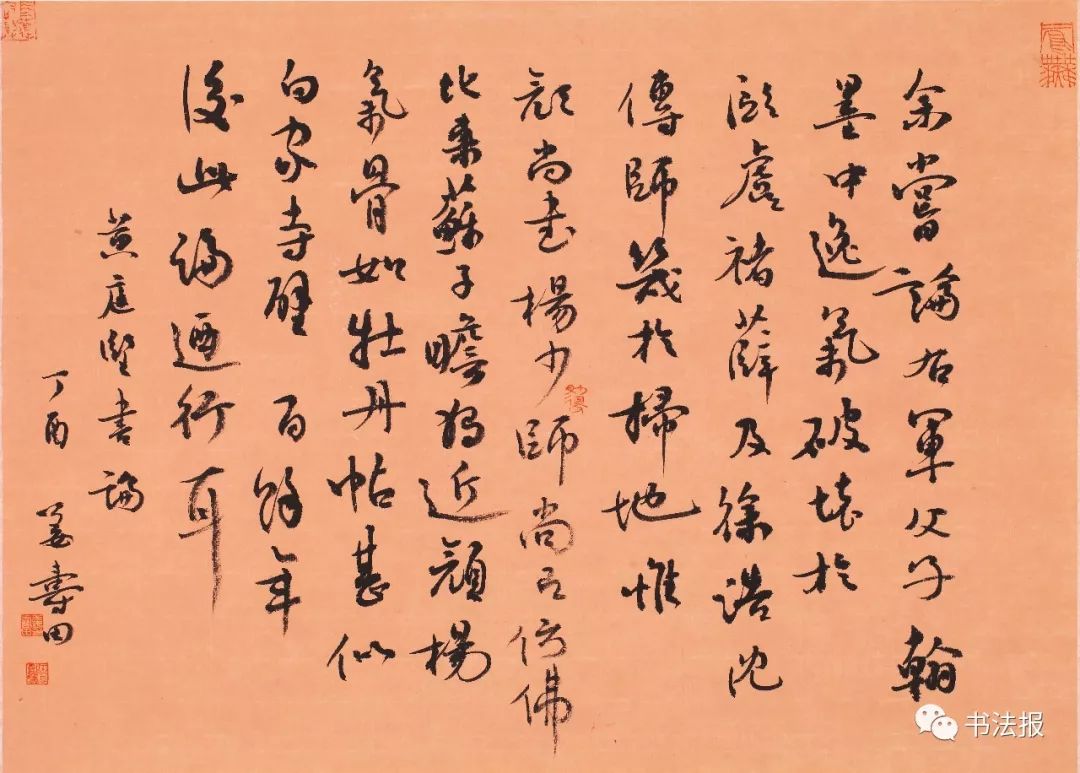 余嘗論右軍父子翰
墨中逸氣破壞於
歐虞褚薛及徐浩沈
傳師幾於掃地惟
顏尚書楊少師尚有仿佛
比來蘇子瞻獨近顏楊
氣骨如牡丹帖甚似
白家寺壁百餘年
後此論迺行耳
黄庭堅書論
丁酉
姜壽田
书法报